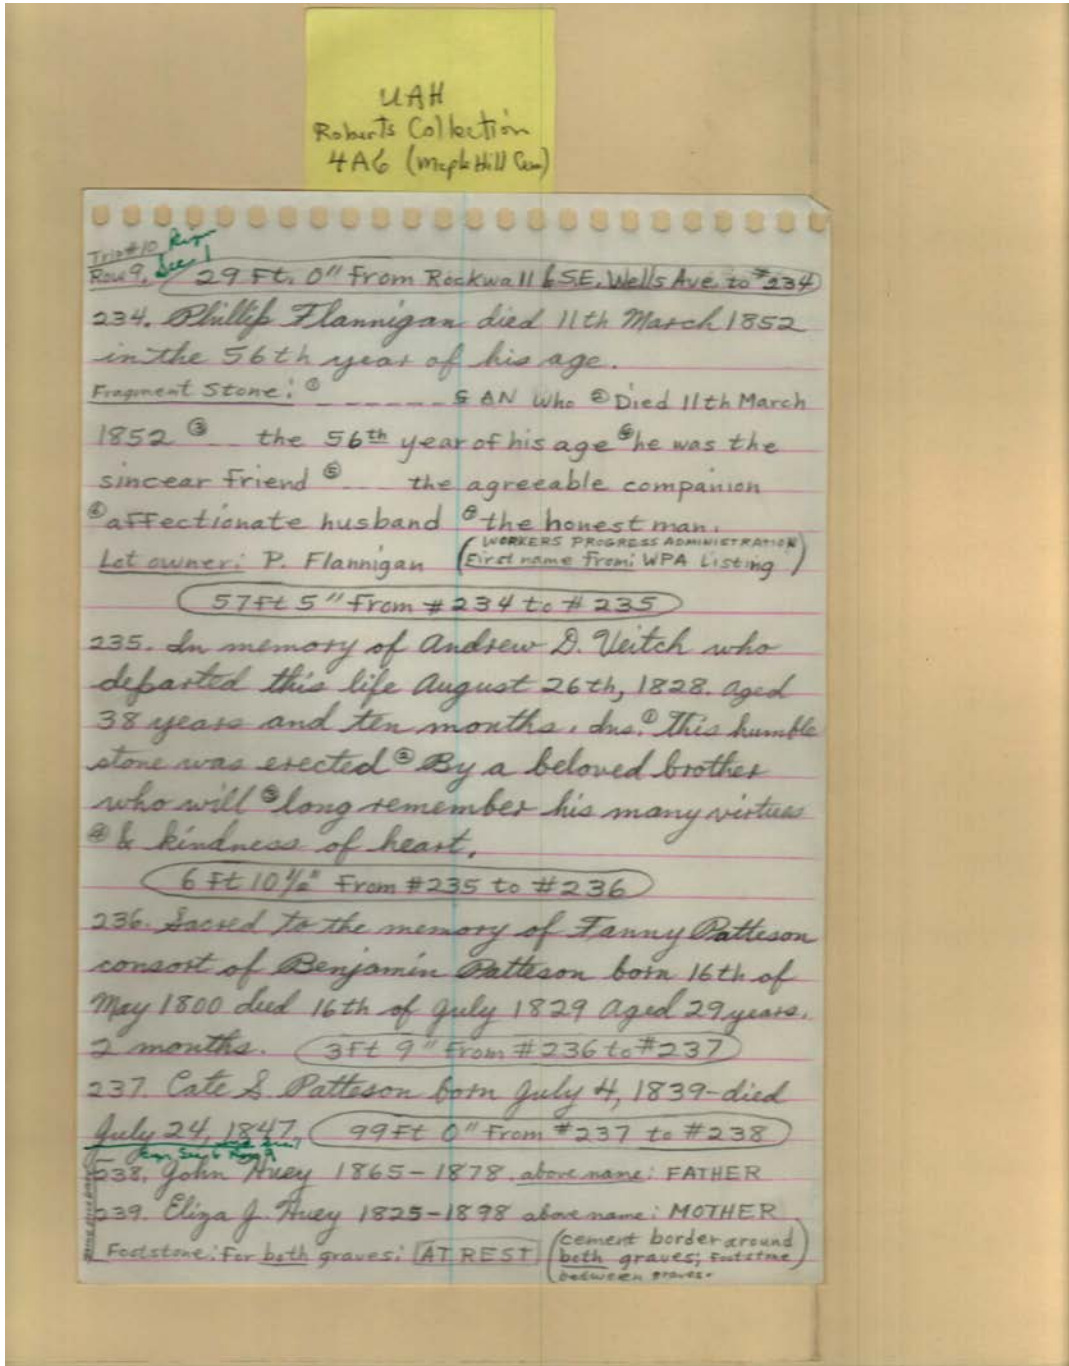 UAH
Roberts Collection
4A6 (Maple Hill Cem)
Trip#10
Row 9, Sec 1
29 Ft. 0" From Rockwall & S.E. Wells Ave to #234
234. Phillip Flannigan died 11th March 1852
in the 56th year of his age.
Fragment Stone: ① _ _ _ _ _ _ _ G AN Who ② Died 11th March
1852 ③ _ _ the 56th year of his age ④ he was the
sincear friend ⑤ _ _ the agreeable companion
⑥ affectionate husband ⑦ the honest man.
(WORKERS PROGRESS ADMINISTRATION
Lot owner: P. Flannigan First name From: WPA Listing)
57Ft 5" From #234 to #235
235. In memory of Andrew D. Veitch who
departed this life August 26th, 1828. aged
38 years and ten months. Ins: ① This humble
stone was erected ② By a beloved brother
who will ③ long remember his many virtues
④ & kindness of heart.
6 Ft 10½" From #235 to #236
236. Sacred to the memory of Fanny Patteson
consort of Benjamin Patteson born 16th of
May 1800 died 16th of July 1829 aged 29 years.
2 months. 3Ft 9" From #236 to #237
237. Cate S. Patteson born July 4, 1839-died
July 24, 1847. 99Ft 0" From #237 to #238
Sec 6 Row 9
238. John Huey 1865-1878. above name: FATHER
239. Eliza J. Huey 1825-1898 above name: MOTHER
Footstone: For both graves: AT REST (cement border around
both graves; Footstone
between graves.)